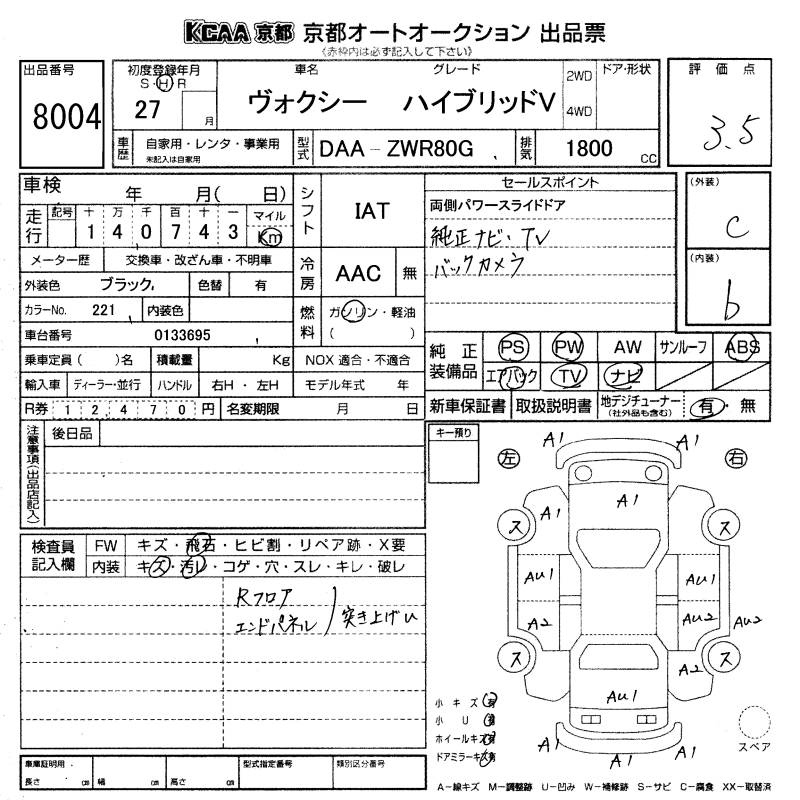 KCAA 京都 京都オートオークション 出品票
《赤枠内は必ず記入して下さい》
出品番号
8004
初度登録年月
S・H・R
27 月
車名 グレード
ヴォクシー ハイブリッドV
2WD
4WD
ドア・形状
評価点
3.5
車歴
自家用・レンタ・事業用
未記入は自家用
型式
DAA－ZWR80G
排気
1800 CC
車検 年 月( 日)
走行
記号 十 万 千 百 十 一 マイル
1 4 0 7 4 3 Km
メーター歴 交換車・改ざん車・不明車
外装色 ブラック 色替 有
カラーNo. 221 内装色
車台番号 0133695
乗車定員( )名 積載量 Kg
輸入車 ディーラー・並行 ハンドル 右H・左H
R券 1 2 4 7 0 円 名変期限 月 日
シフト
IAT
冷房
AAC 無
燃料
ガソリン・軽油
( )
NOX 適合・不適合
モデル年式 年
セールスポイント
両側パワースライドドア
純正ナビ・TV
バックカメラ
(外装)
C
(内装)
b
純正装備品
PS PW AW サンルーフ ABS
エアバック TV ナビ
新車保証書 取扱説明書 地デジチューナー
(社外品も含む)
有・無
注意事項(出品店記入)
後日品
キー預り
左 右
検査員記入欄
FW キズ・飛石・ヒビ割・リペア跡・X要
内装 キズ・汚レ・コゲ・穴・スレ・キレ・破レ
Rフロア
エンドパネル
突き上げU
A1 A1
A1
A1 A1
ス ス
AU1 AU1
A2 AU2 AU2
ス ス
A2
AU1
A1 A1 A1
小キズ 有
小U 有
ホイールキズ 有
ドアミラーキズ 有
スペア
車庫証明用
長さ cm 幅 cm 高さ cm
型式指定番号
類別区分番号
A－線キズ M－調整跡 U－凹み W－補修跡 S－サビ C－腐食 XX－取替済